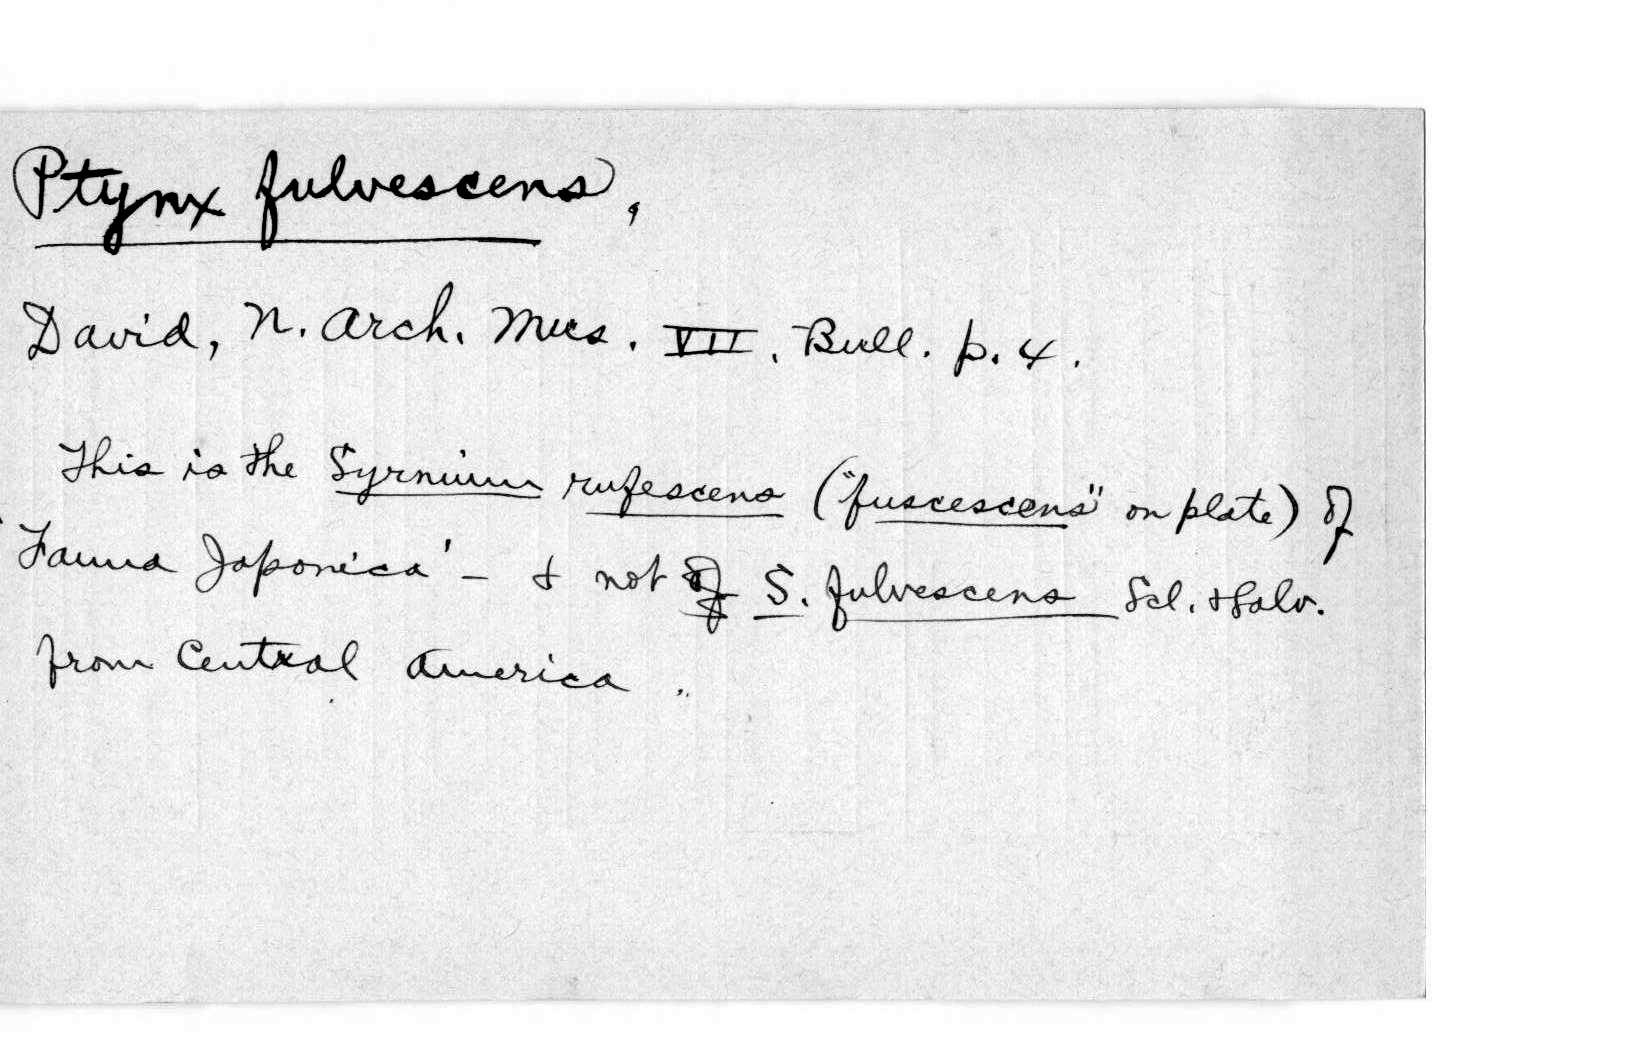 Ptynx fulvescens,
David, N. Arch. Mus. VII. Bull. p. 4.
This is the Syrnium rufescens ("fuscescens" on plate) of
'Fauna Japonica' – & not of S. fulvescens Scl. & Salv.
from Central America.